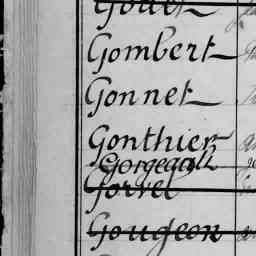 Gombert
Gonnet
Gonthier
Gorgeault
Gorret
Gougeon